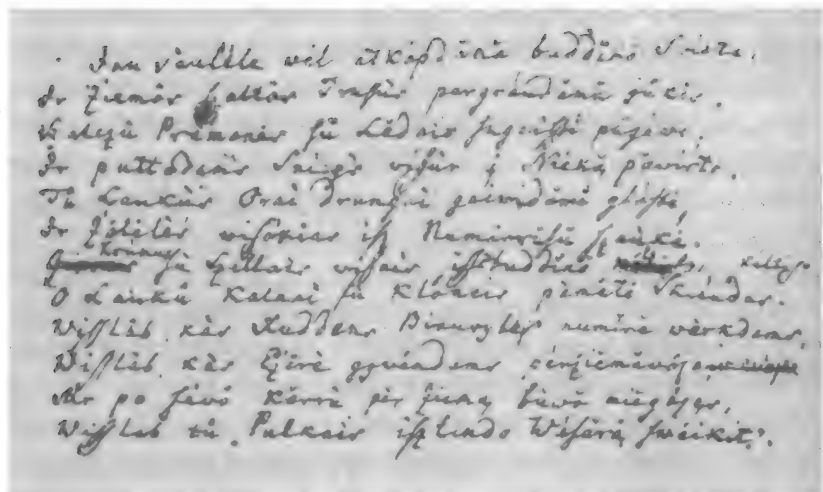 Jau Saulële wël atkópdămă buddĭno Swietą,
Ir Źiëmôs Szaltôs Trusùs pargráudămă jůkës.
Szalczû Prämonës sù Lëdais sugaiszti pagåwo,
Ir puttodams Sniëgs wissur į Nieką pawirto.
Tů Laukùs Orai drungni gaiwĭdămi glóste,
Ir Żóleles wissokias isz Numirrusû szaukë.
Krumus sù Szillais wissais iszsibuddĭno keltis,
O Laukû Kalnai sù Klóneis pamëtė Skrándas.
Wisslàb, kàs Ruddens Biaurybëj numirë werkdams,
Wisslàb, kàs Eźerè gywéndams pérźiëmăwojo
Ar po sawô Kërrù pèr Źiëmą buwo miëgojęs,
Wisslàb tů Pulkais iszlindo Wasărą sweikĭt.